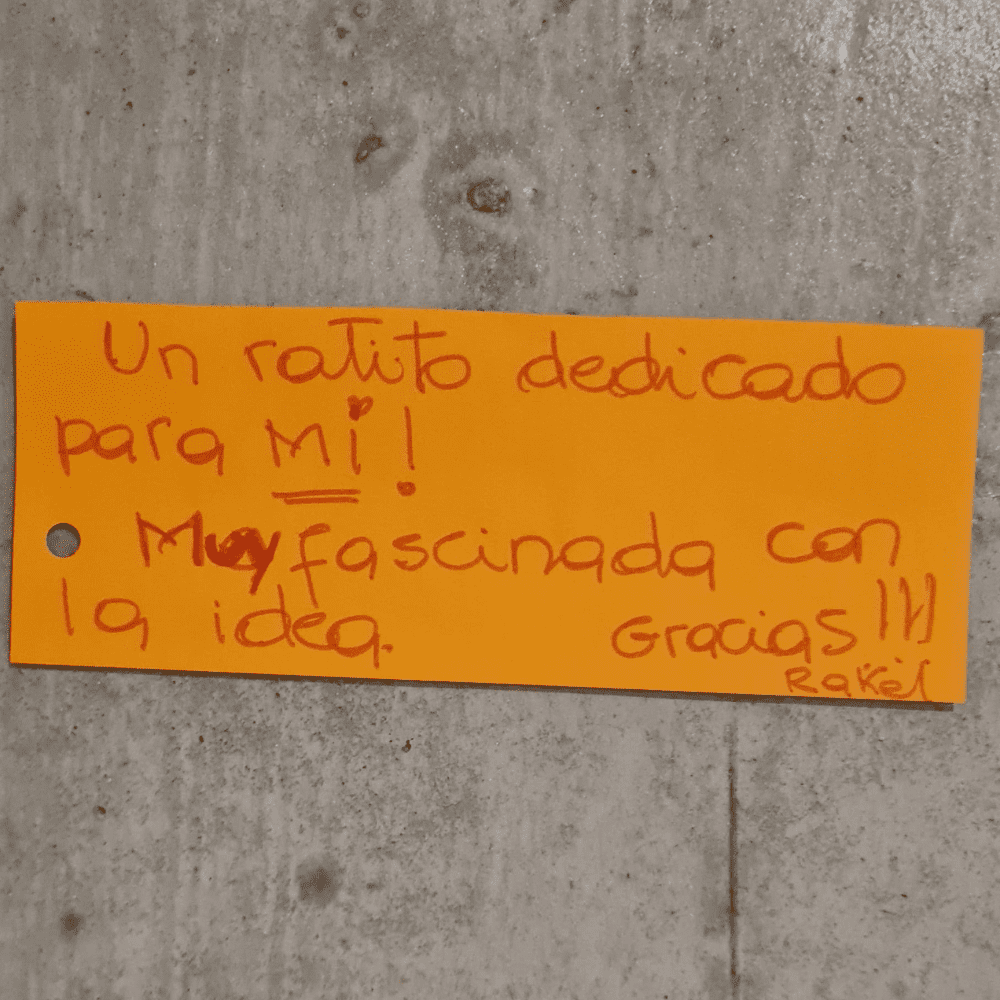 Un ratito dedicado
para Mi!
Muy fascinada con
la idea.
Gracias!!!
Rakel